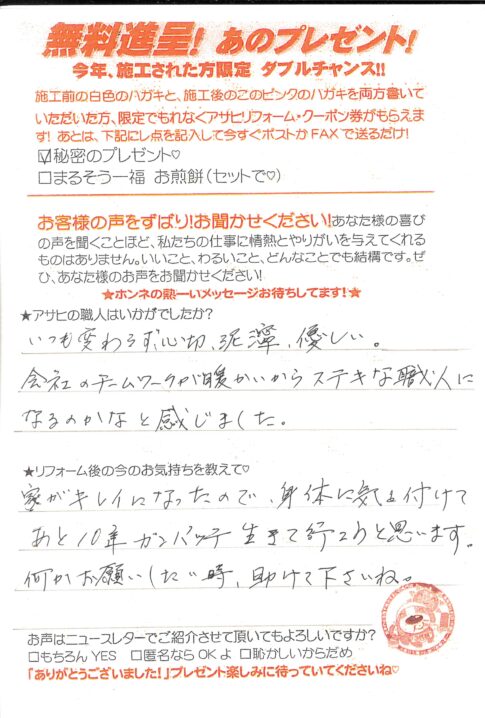 無料進呈！あのプレゼント！
今年、施工された方限定 ダブルチャンス!!
施工前の白色のハガキと、施工後のこのピンクのハガキを両方書いて
いただいた方、限定でもれなくアサヒリフォーム・クーポン券がもらえま
す！あとは、下記にレ点を記入して今すぐポストかFAXで送るだけ!
☑秘密のプレゼント♡
□まるそう一福 お煎餅(セットで♡)
お客様の声をずばり!お聞かせください!あなた様の喜び
の声を聞くことほど、私たちの仕事に情熱とやりがいを与えてくれる
ものはありません。いいこと、わるいこと、どんなことでも結構です。ぜ
ひ、あなた様のお声をお聞かせください!
★ホンネの熱ーいメッセージお待ちしてます!★
★アサヒの職人はいかがでしたか?
いつも変わらず、心切、泥濘、優しい。
会社のチームワークが暖かいからステキな職人に
なるのかなと感じました。
★リフォーム後の今のお気持ちを教えて♡
家がキレイになったので、身体に気を付けて
あと10年ガンバッテ生きて行こうと思います。
何かお願いしたい時、助けて下さいね。
お声はニュースレターでご紹介させて頂いてもよろしいですか?
□もちろんYES □匿名ならOKよ □恥かしいからだめ
「ありがとうございました!」プレゼント楽しみに待っていてくださいね♡